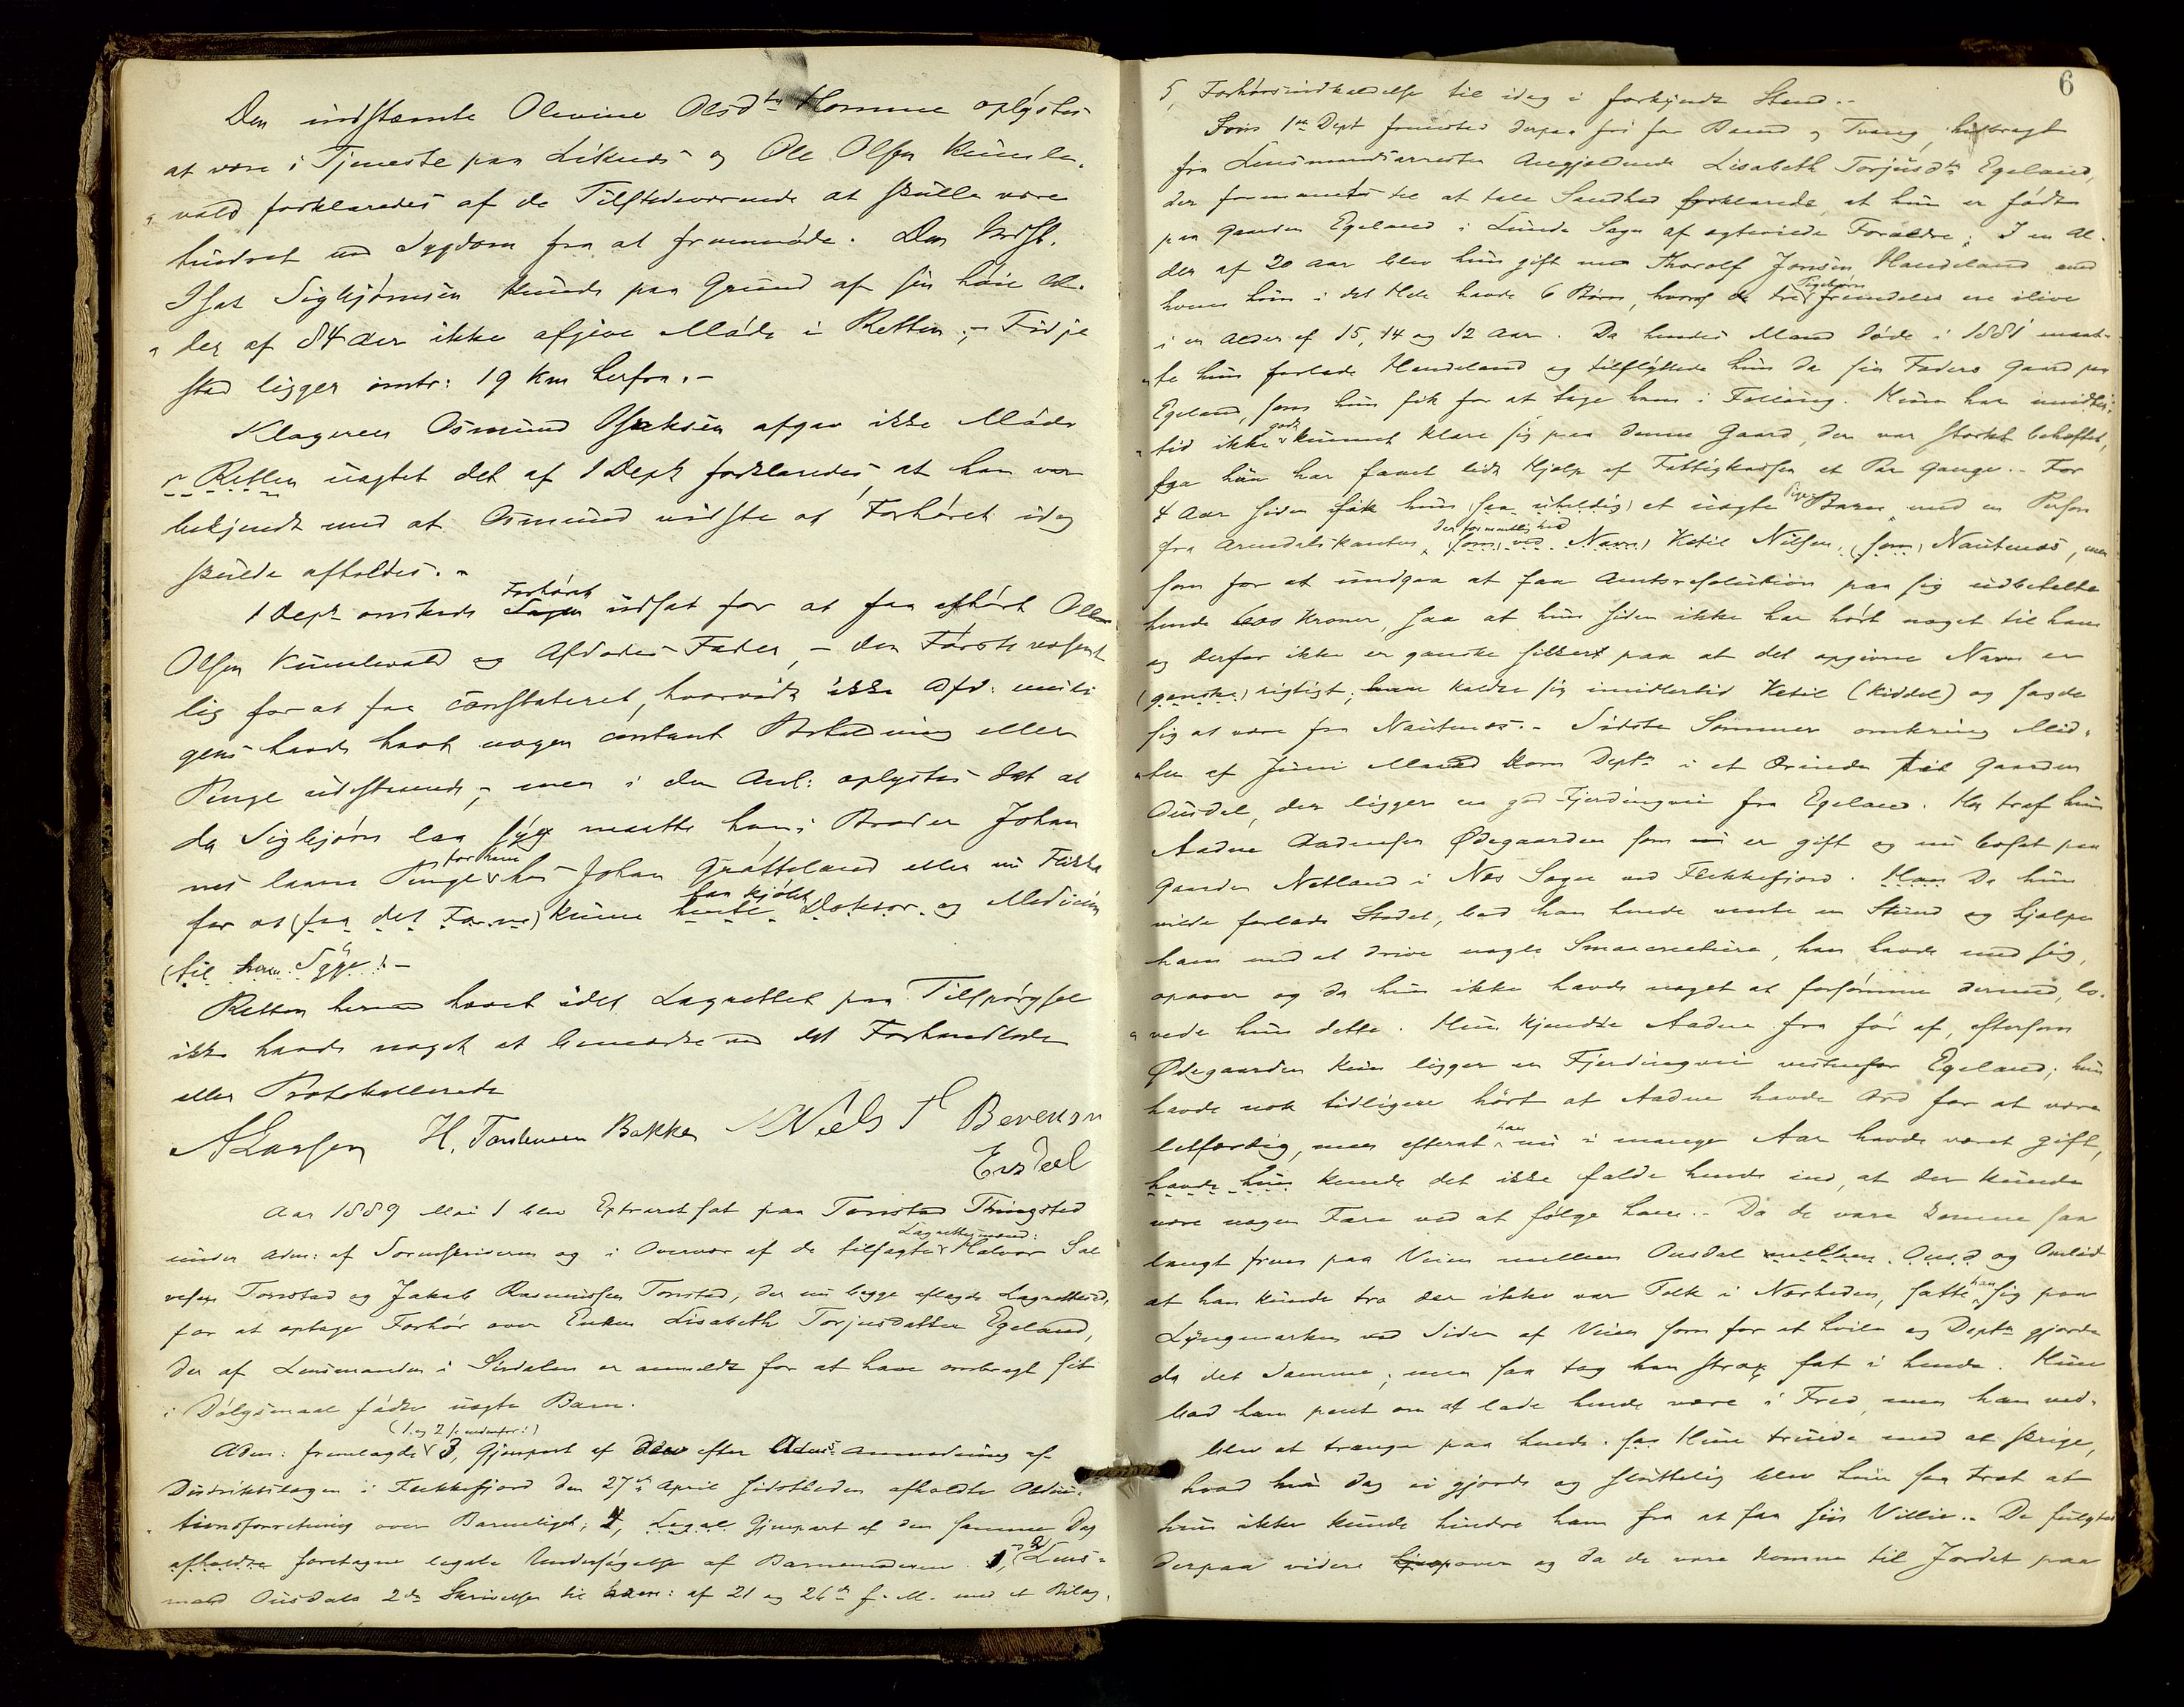 Den indstævnte Olevine Olsdtr Homme oplystes
at være i Tjeneste paa Liknes og Ole Olsen Kunle-
vold forklaredes af de Tilstedeværende at skulle være
hindret ved Sygdom fra at fremmøde. Den Indst.
Isak Sigbjørnsen kunde paa Grund af sin høie Al-
der af 84 Aar ikke afgive Møde i Retten; - Fidje
stad ligger omtr: 19 Km herfra. -
Klageren Osmund Isaksen afgav ikke Møde
i Retten uagtet det af 1 Dept forklaredes, at han var
bekjendt med at Osmund vidste at Forhøret idag
skulde afholdes. -
1 Dept ønskede Sagen Forhøret udsat for at faa afhørt Ole
Olsen Kunlevold og Afdødes Fader, - den Første væsent
lig for at faa constateret, hvorvidt ikke Afd: muli
gens havde havt nogen contant Beholdning eller
Penge udestaaende, men i den Anl: oplystes det at
da Sigbjørn laa syg maatte hans Broder Johan
nes laane Penge for ham hos Johan Grøtteland eller
for at (faa det For) kunne hente Doktor og Medicin
(til den Syge). -
Retten hermed hævet idet Lagrettet paa Tilspørgsel
ikke havde noget at bemærke ved det Forhandlede
eller Protokollerede
ALarsen H. Torkelsen Bakke Niels T Bevenson
Ersdal
Aar 1889 Mai 1 blev Extraret sat paa Tonstad Thingsted
under Adm: af Sorenskriveren og i Overvær af de tilsagte Lagrettesmænd: Halvor Sal
vesen Tonstad og Jakob Rasmussen Tonstad, der nu begge aflagde Lagrettesed,
for at optage Forhør over Enken Lisabeth Torjusdatter Egeland,
der af Lensmanden i Sirdalen er anmeldt for at have ombragt sit
i Dølgsmaal fødte uægte Barn.
Adm: fremlagde (1 og 2 nedenfor:) 3, Gjenpart af den efter Adms Anmodning af
Distriktslægen i Flekkefjord den 27de April sidstleden afholdte Obduk-
tionsforretning over Barneliget; 4, Legal Gjenpart af den samme Dag
afholdte foretagne legale Undersøgelse af Barnemoderen. 1, 2, Lens-
mand Ousdals 2de Skrivelser til Adm: af 21 og 26de f. M. med et Bilag,
6
5, Forhørsindkaldelse til idag i forkyndt Stand. -
Som 1ste Dept fremstod derpaa fri for Baand og Tvang, hidbragt
fra Lensmandsarresten Angjældende Lisabeth Torjusdtr Egeland,
der formanet til at tale Sandhed forklarede, at hun er født
paa Gaarden Egeland i Lunde Sogn af egteviede Forældre; I en Al-
der af 20 Aar blev hun gift med Thorolf Jonsen Haudeland med
hvem hun i det Hele havde 6 Børn, hvoraf de tre Pigebørn fremdeles ere ilive
i en Alder af 15, 14 og 12 Aar. Da hendes Mand døde i 1881 maat-
te hun forlade Haudeland og tilflyttede hun da sin Faders Gaard paa
Egeland, som hun fik for at tage ham i Føring. Hun har imidler-
tid ikke godt kunnet klare sig paa denne Gaard, der var stærkt behæftet,
og hun har faaet lidt Hjælp af Fattigkassen et Par Gange. - For
4 Aar siden fik hun (saa uheldig) et uægte Pige Barn med en Person
fra Arendalskanten der formentlig hed (som ved Navn) Ketil Nilsen, (som) Nautnes, men
som for at undgaa at faa Amtsresolution paa sig udbetalte
hende 600 Kroner, saa at hun siden ikke har hørt noget til ham
og derfor ikke er ganske sikker paa at det opgivne Navn er
(ganske) rigtigt; han kaldte sig imidlertid Ketil (Kiddel) og sagde
sig at være fra Nautnes. - Sidste Sommer omkring Mid-
ten af Juni Maaned kom Deptn i et Ærinde til Gaarden
Ousdal, der ligger en god Fjerdingvei fra Egeland. Her traf hun
Aadne Aadnesen Ødegaarden som nu er gift og nu bosat paa
Gaarden Netland i Næs Sogn ved Flekkefjord. Han Da hun
vilde forlade Stedet, bad han hende vente en Stund og hjælpe
ham med at drive nogle Smaacreaturer, han havde med sig,
opover og da hun ikke havde noget at forsømme dermed, lo-
vede hun dette. Hun kjendte Aadne fra før af, eftersom
Ødegaarden kun ligger en Fjerdingvei vestenfor Egeland; hun
havde nok tidligere hørt at Aadne havde Ord for at være
letfærdig, men efterat han nu i mange Aar havde været gift,
havde hun kunde det ikke falde hende ind, at der kunde
være nogen Fare ved at følge ham. - Da de vare komne saa
langt frem paa Veien mellem Ousdal mellem Ousd og Omlid
at han kunde tro der ikke var Folk i Nærheden, satte han sig paa
Lyngmarken ved Siden af Veien som for at hvile og Deptn gjorde
da det samme; men saa tog han strax fat i hende. Hun
bad ham pent om at lade hende være i Fred, men han ved-
blev at trænge paa hende. saa Hun truede med at skrige,
hvad hun dog ei gjorde og sluttelig blev hun saa træt at
hun ikke kunde hindre ham fra at faa sin Villie. - De fulgtes
derpaa videre opover og da de vare komne til Jordet paa